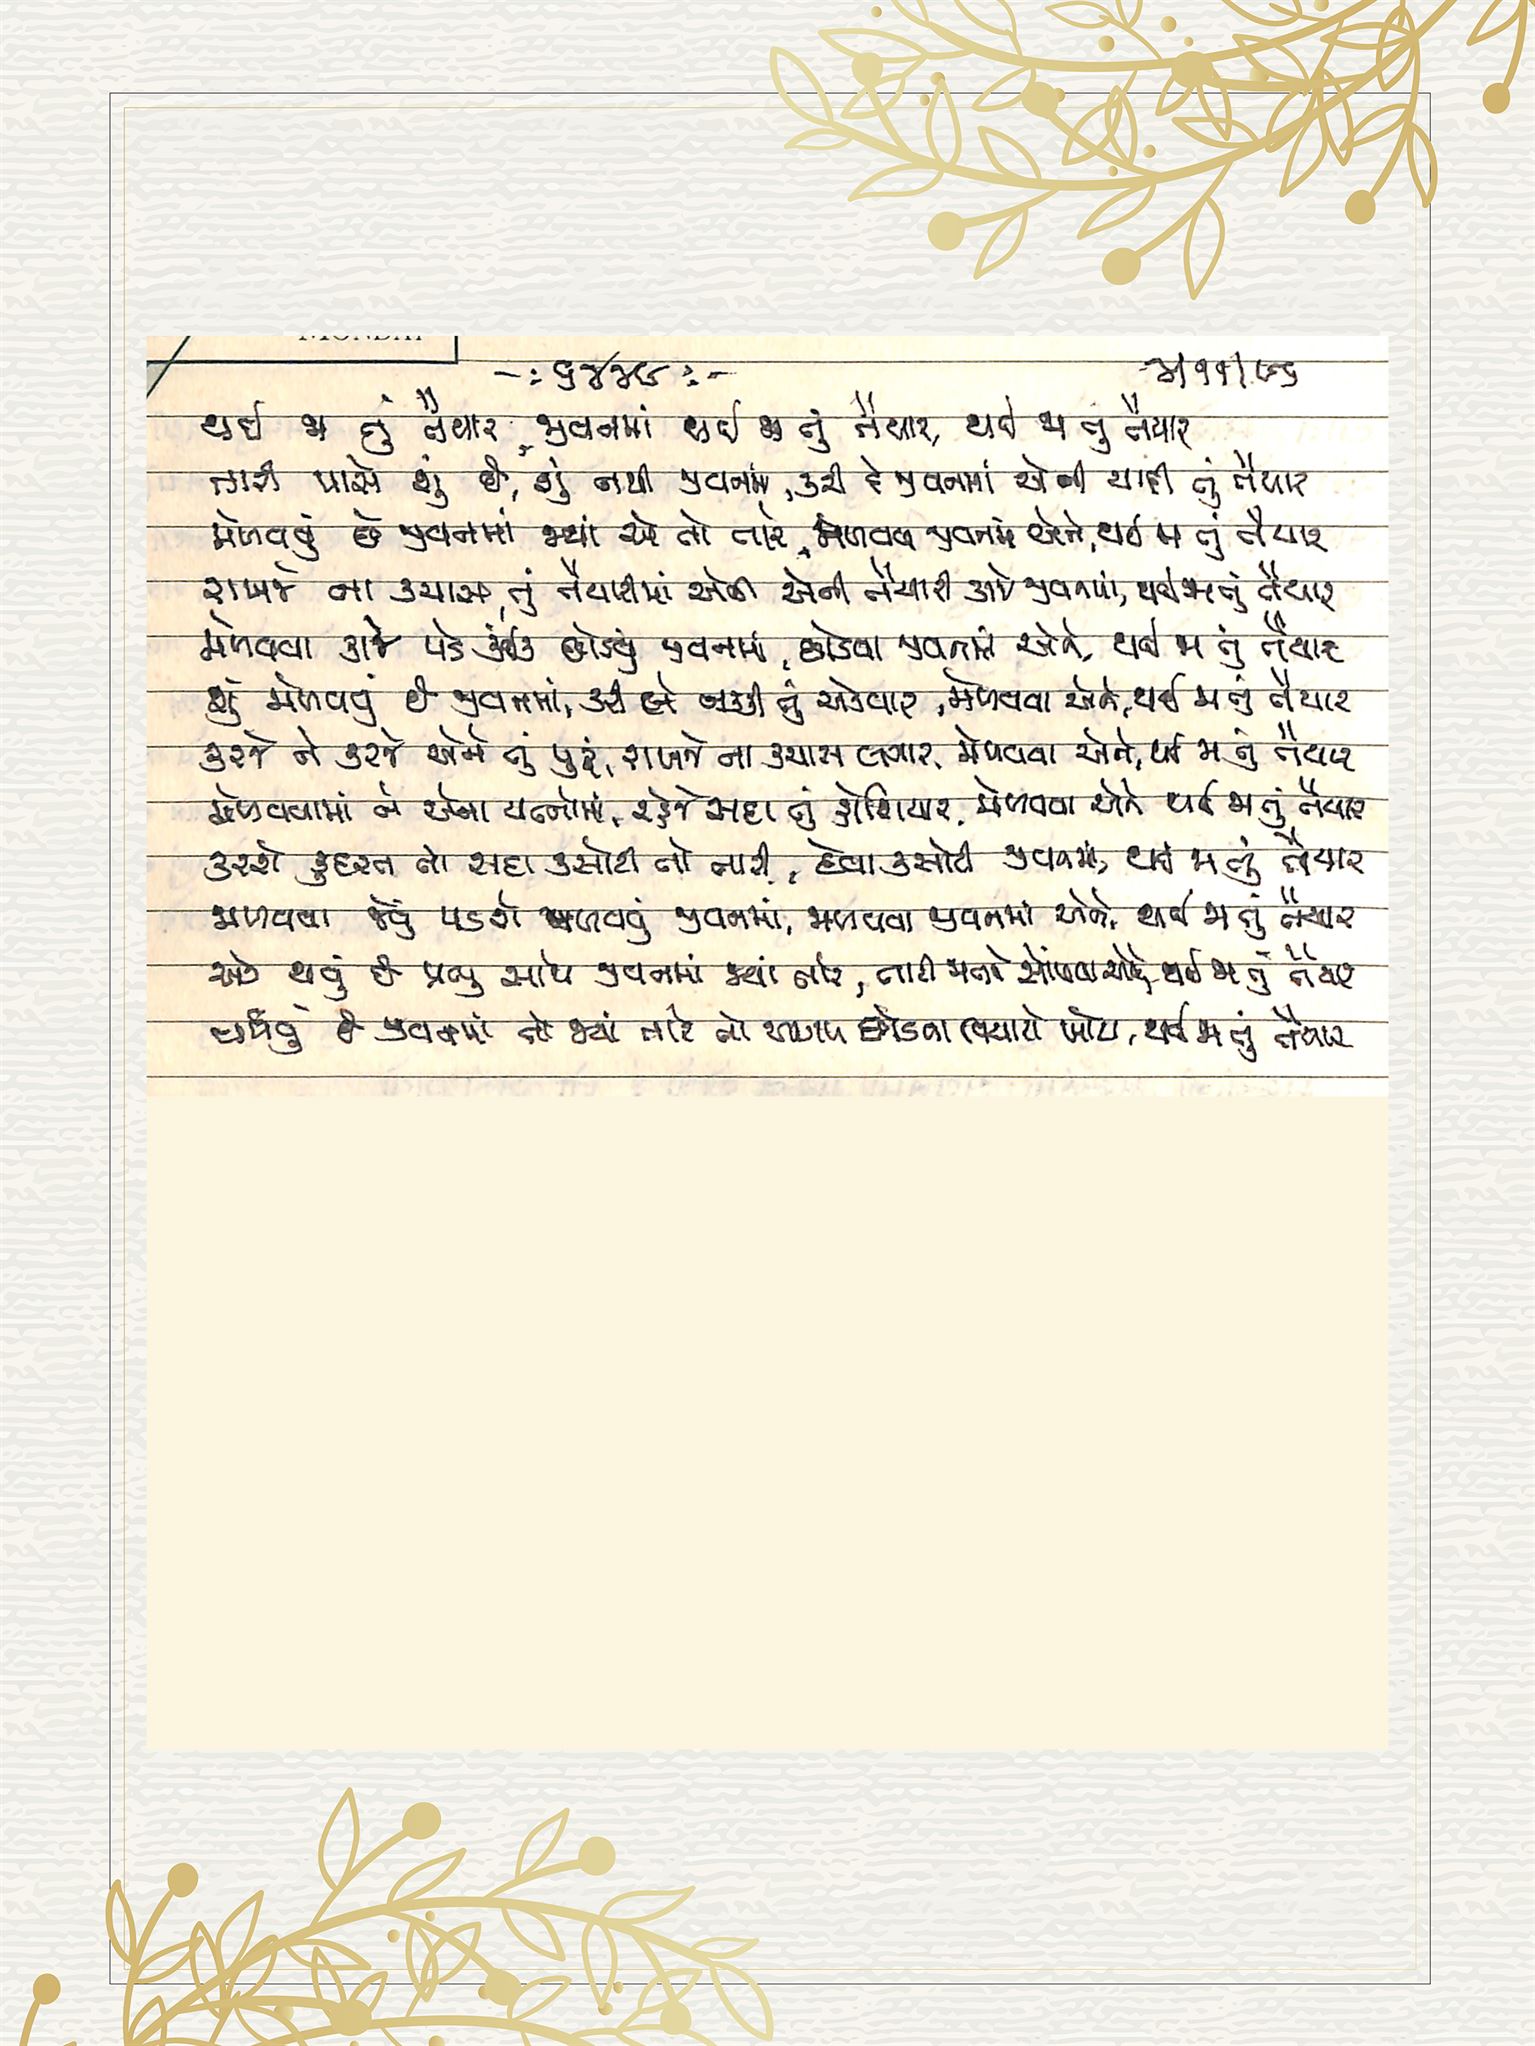 MONDAY
-: ૬૪૪૯ :-
૪/૧૧/૯૬
થઈ જા તું તૈયાર, જીવનમાં થઈ જા તું તૈયાર, થઈ જા તું તૈયાર
તારી પાસે શું છે, શું નથી જીવનમાં, કરી દે જીવનમાં એની યાદી તું તૈયાર
મેળવવું છે જીવનમાં જ્યાં એ તો તારે, મેળવવા જીવનમાં એને, થઈ જા તું તૈયાર
રાખજે ના કચાશ તું તૈયારીમાં એની એની તૈયારી કાજે જીવનમાં, થઈ જા તું તૈયાર
મેળવવા કાજે પડે કંઈક છોડવું જીવનમાં, છોડવા જીવનમાં એને, થઈ જા તું તૈયાર
શું મેળવવું છે જીવનમાં, કરી લે નક્કી તું એકવાર, મેળવવા એને, થઈ જા તું તૈયાર
કરજે ને કરજે એને તું પુરું, રાખજે ના કચાશ લગાર, મેળવવા એને, થઈ જા તું તૈયાર
મેળવવામાં ને એના યત્નોમાં, રહેજે સદા તું હોશિયાર, મેળવવા એને થઈ જા તું તૈયાર
કરશે કુદરત તો સદા કસોટી તો તારી, દેવા કસોટી જીવનમાં, થઈ જા તું તૈયાર
મેળવવા જેવું પડશે મેળવવું જીવનમાં, મેળવવા જીવનમાં એને, થઈ જા તું તૈયાર
એક થવું છે પ્રભુ સાથે જીવનમાં જ્યાં તારે, તારા મનને સોંપવા એને, થઈ જા તું તૈયાર
છે જીવનમાં તો જ્યાં તારે તો છોડવા વિચારો ખોટા, થઈ જા તું તૈયાર